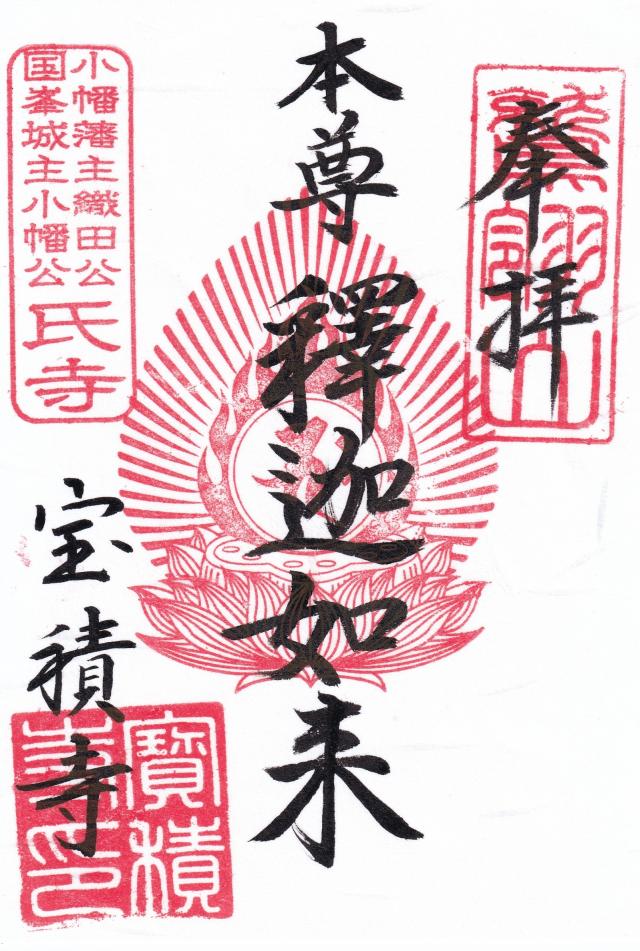 奉拝
鷲翎山
本尊
釋迦如来
小幡藩主織田公
国峯城主小幡公
氏寺
宝積寺
寶積
寺印